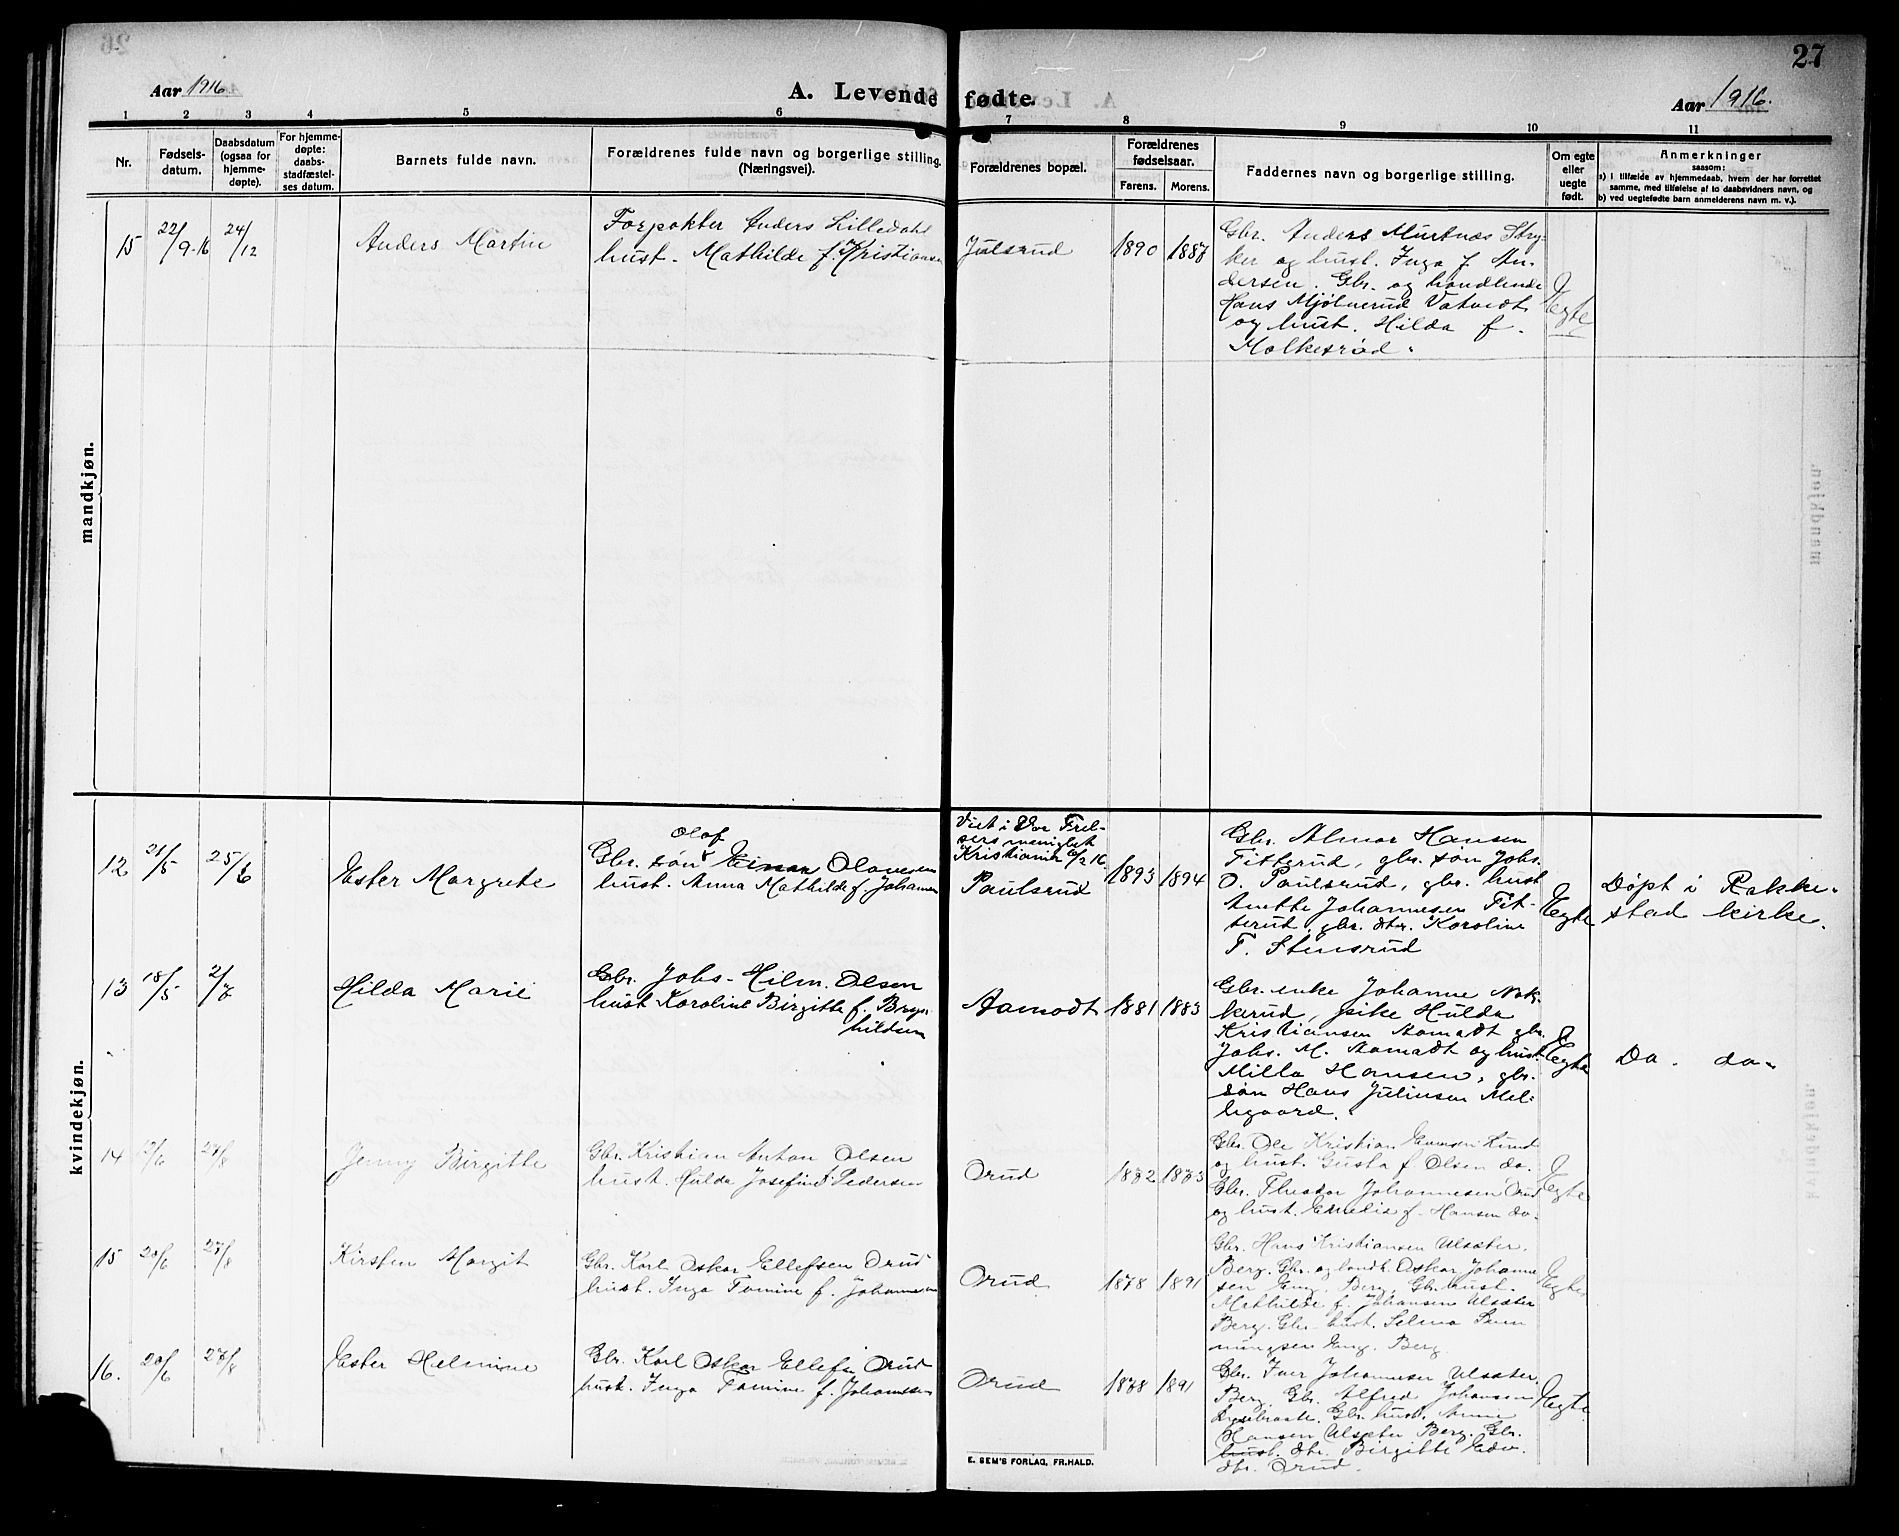 27
Aar 1916
A. Levende fødte.
Aar 1916.
1 2 3 4 5 6 7 8 9 10 11
Nr.
Fødsels-
datum.
Daabsdatum
(ogsaa for
hjemme-
døpte).
For hjemme-
døpte:
daabs-
stadfæstel-
ses datum.
Barnets fulde navn.
Forældrenes fulde navn og borgerlige stilling.
(Næringsvei).
Forældrenes bopæl.
Forældrenes
fødselsaar.
Farens. Morens.
Faddernes navn og borgerlige stilling.
Om egte
eller
uegte
født.
Anmerkninger
saasom:
a) i tilfælde av hjemmedaab, hvem der har forrettet
samme, med tilføielse af to daabsvidners navn, og
b) ved uegtefødte barn anmelderens navn m. v.).
mandkjøn.
15 22/9-16 24/12 Anders Martin
Forpakter Anders Lilledahl
hust. Mathilde f. Kristiansen
Julsrud 1890 1887
Gbr. Anders Murtnæs Stry-
ker og hust. Inga f. An-
dersen. Gbr. og handlende
Hans Mjølnerud Vatvedt
og hust. Hilda f.
Molkesrød.
Egte
kvindekjøn.
12 21/5 25/6 Ester Margrete
Olof
Gbr. søn Einar Olavesen
hust. Anna Mathilde f. Johansen
Viet i Vor Frel-
sers menighet
Kristiania 6/2 16.
Paulsrud 1893 1894
Gbr. Almar Hansen
Titterud, gbr. søn Johs.
O. Paulsrud, gbr. hust
Anette Johannesen Tit-
terud, gbr. dtr. Karoline
T. Stensrud
Egte
Døpt i Rakke-
stad kirke.
13 18/5 2/7 Hilda Marie
Gbr. Johs. Hilm. Olsen
hust Karoline Birgitte f. Bryn
hildsen
Aamodt 1881 1883
Gbr. enke Johanne Nok-
kerud, pike Hulda
Kristiansen Aamodt gbr.
Johs. M. Aamodt og hust.
Milla Hansen, gbr.
søn Hans Juliusen Mel-
legaard.
Egte
Do. do-
14 12/6 27/8 Jenny Birgitte
Gbr. Kristian Anton Olsen
hust. Hulda Josefine f. Pedersen
Orud 1882 1883
Gbr. Ole Kristian Hansen Lund
og hust. Gusta f. Olsen do.
Gbr. Theodor Johannesen Orud
og hust. Emelie f. Hansen do-
Egte
15 20/6 27/8 Kirsten Margit
Gbr. Karl Oskar Ellefsen Orud
hust. Inga Tomine f. Johannesen
Orud 1878 1891
Gbr. Hans Kristiansen Ulsæter.
Berg. Gbr. og landh. Oskar Johanne
sen Eng, Berg, Gbr. hust.
Mathilde f. Johansen Ulsæter
Berg. Gbr. hust. Selma
Eng. Berg.
Egte
16. 20/6 27/8 Ester Helmine
Gbr. Karl Oskar Ellefs. Orud
hust. Inga Tomine f. Johannesen
Orud 1878 1891
Gbr. Iver Johannesen Ulsæter.
Berg. Gbr. Alfred Johansen
Gbr. hust. Anne
Hansen Ulsæter Berg. Gbr.
hust. dtr. Birgitte Edv.
dtr. Orud.
Egte
E. SEM'S FORLAG, FR.HALD.